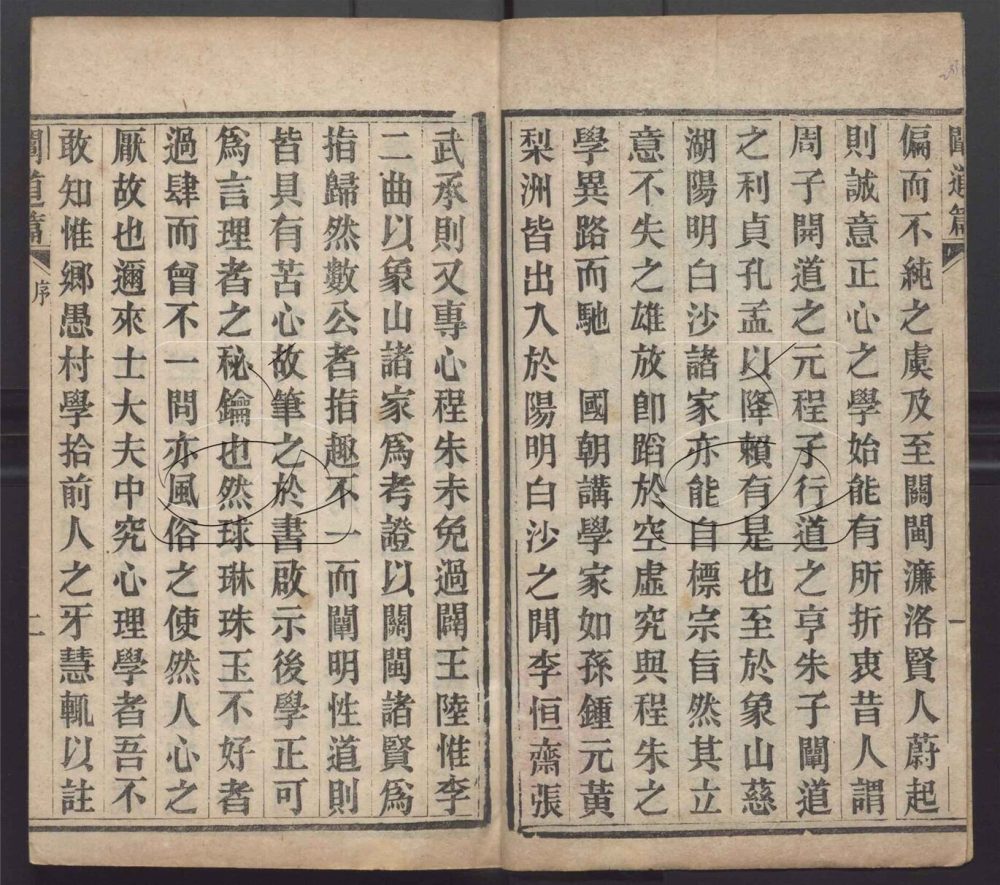 闢道篇
一
偏而不純之虞及至關閩濂洛賢人蔚起
則誠意正心之學始能有所折衷昔人謂
周子開道之元程子行道之亨朱子闡道
之利貞孔孟以降賴有是也至於象山慈
湖陽明白沙諸家亦能自標宗旨然其立
意不失之雄放卽蹈於空虛究與程朱之
學異路而馳　國朝講學家如孫鍾元黃
梨洲皆出入於陽明白沙之間李恒齋張
武承則又專心程朱未免過闢王陸惟李
二曲以象山諸家爲考證以關閩諸賢爲
指歸然數公者指趣不一而闡明性道則
皆具有苦心故筆之於書啟示後學正可
爲言理者之秘鑰也然球琳珠玉不好者
過肆而曾不一問亦風俗之使然人心之
厭故也邇來士大夫中究心理學者吾不
敢知惟鄉愚村學拾前人之牙慧輒以註
道篇
序
二